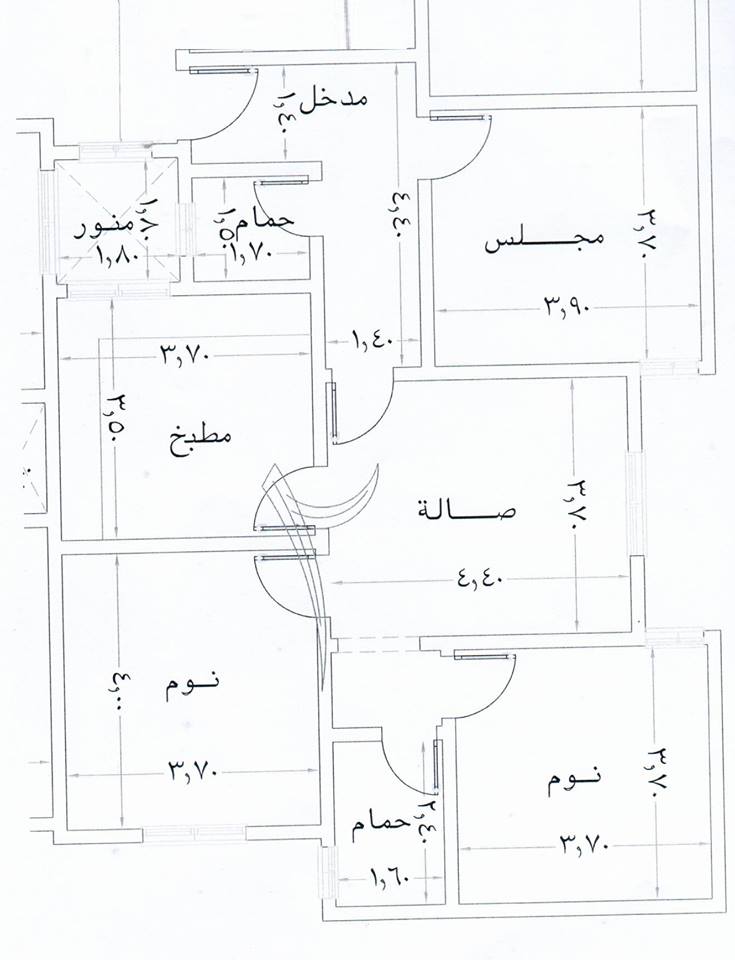 مدخل
١,٤٠
٤,٤٠
مجـــلس
٣,٧٠
٣,٩٠
منور
١,٨٠
١,٨٠
حمام
١,٥٠
١,٧٠
١,٤٠
٣,٧٠
مطبخ
٣,٥٠
صـــالة
٣,٧٠
٤,٤٠
نــوم
٤,٠٠
٣,٧٠
حمام
٢,٤٠
١,٦٠
نــوم
٣,٧٠
٣,٧٠